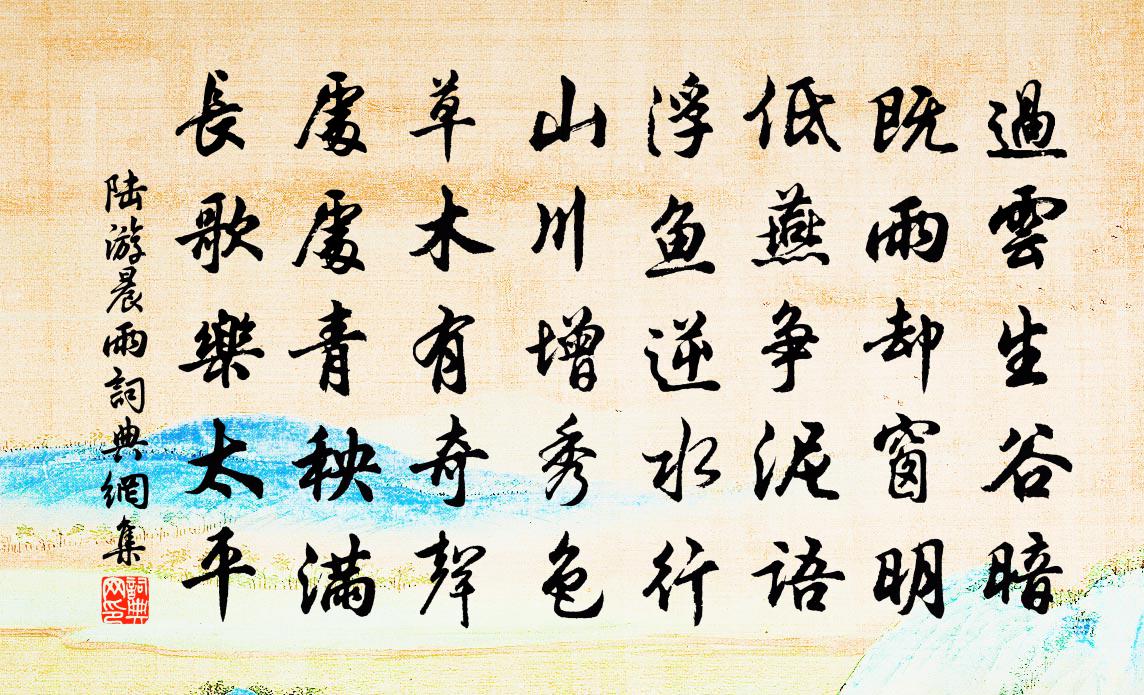 過雲生谷暗
既雨却窗明
低燕争泥語
浮鱼逆水行
山川增秀色
草木有奇聲
處處青秧滿
長歌樂太平
陆游晨雨詞典網集
詞典